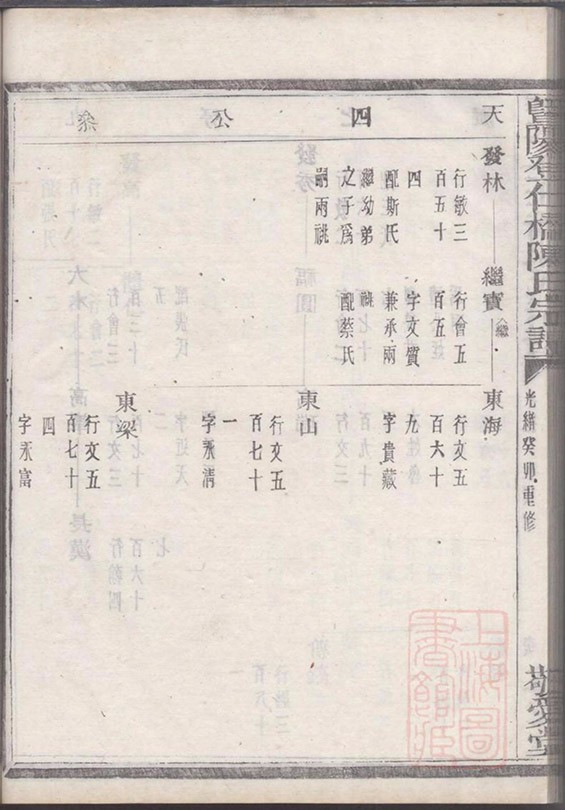 暨陽登仕橋陳氏宗譜
光緒癸卯重修
敬愛堂
天 四 公 叅
發林
行敏三
百五十
四
配斯氏
繼幼弟
之子爲
嗣兩祧
繼寶
繼
行會五
百五五
字文質
兼承兩
祧
配蔡氏
東海
行文五
百六十
九
字貴藏
東山
行文五
百七十
一
字永清
東梁
行文五
百七十
四
字永富
上海圖
書館藏